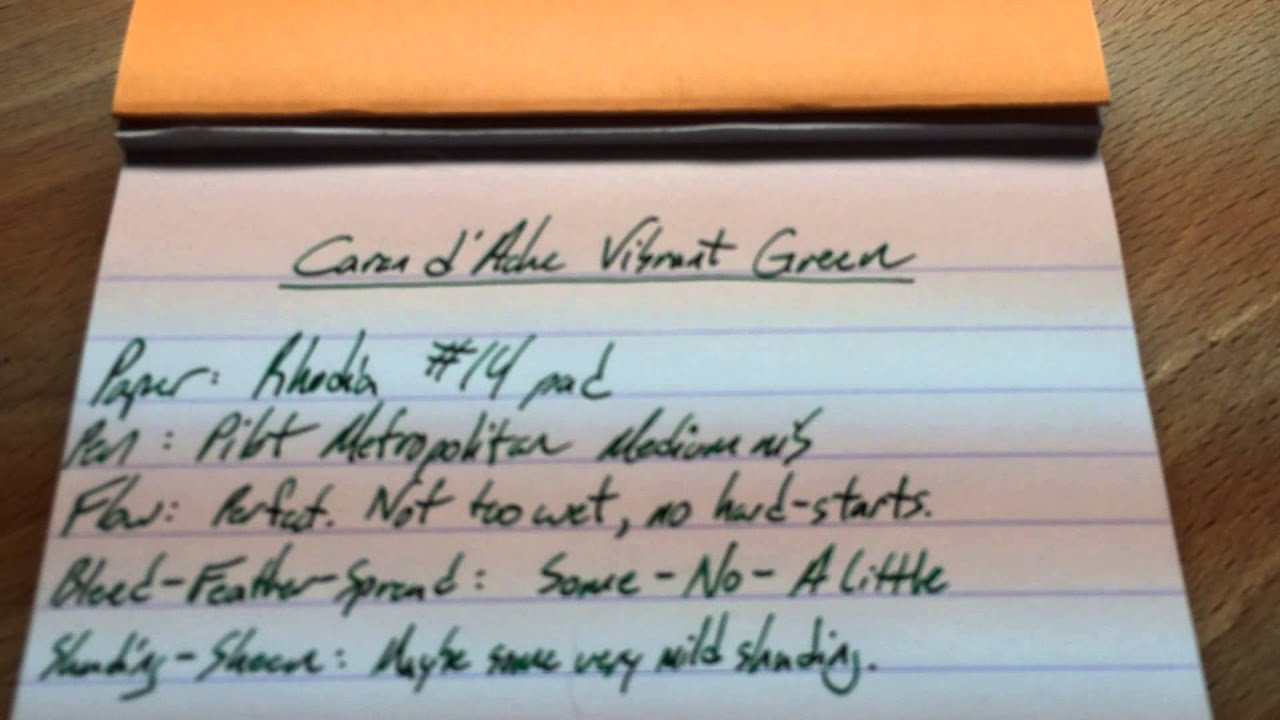 Caran d'Ache Vibrant Green
Paper: Rhodia #14 pad
Pen: Pilot Metropolitan Medium nib
Flow: Perfect. Not too wet, no hard-starts.
Bleed-Feather-Spread: Some-No-A little
Shading-Sheen: Maybe some very mild shading.